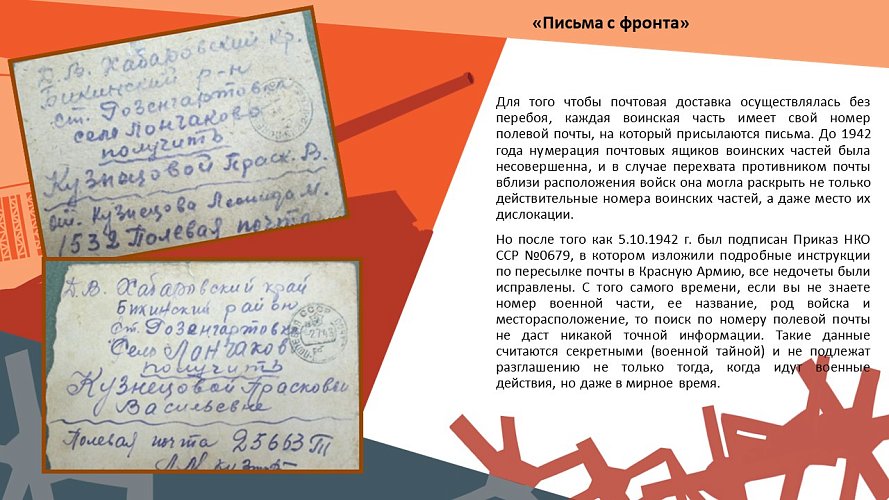 «Письма с фронта»
Д. В. Хабаровский кр.
Бикинский р-н
ст. Розенгартовка
село Лончаково
получить
Кузнецовой Праск. В.
от. Кузнецова Леонида М.
1532 Полевая почта
Д. В. Хабаровский край
Бикинский район
ст. Розенгартовка
Село Лончаков
получить
Кузнецовой Прасковьи
Васильевне
Полевая почта 25663 Т
СССР
Для того чтобы почтовая доставка осуществлялась без
перебоя, каждая воинская часть имеет свой номер
полевой почты, на который присылаются письма. До 1942
года нумерация почтовых ящиков воинских частей была
несовершенна, и в случае перехвата противником почты
вблизи расположения войск она могла раскрыть не только
действительные номера воинских частей, а даже место их
дислокации.
Но после того как 5.10.1942 г. был подписан Приказ НКО
ССР №0679, в котором изложили подробные инструкции
по пересылке почты в Красную Армию, все недочеты были
исправлены. С того самого времени, если вы не знаете
номер военной части, ее название, род войска и
месторасположение, то поиск по номеру полевой почты
не даст никакой точной информации. Такие данные
считаются секретными (военной тайной) и не подлежат
разглашению не только тогда, когда идут военные
действия, но даже в мирное время.